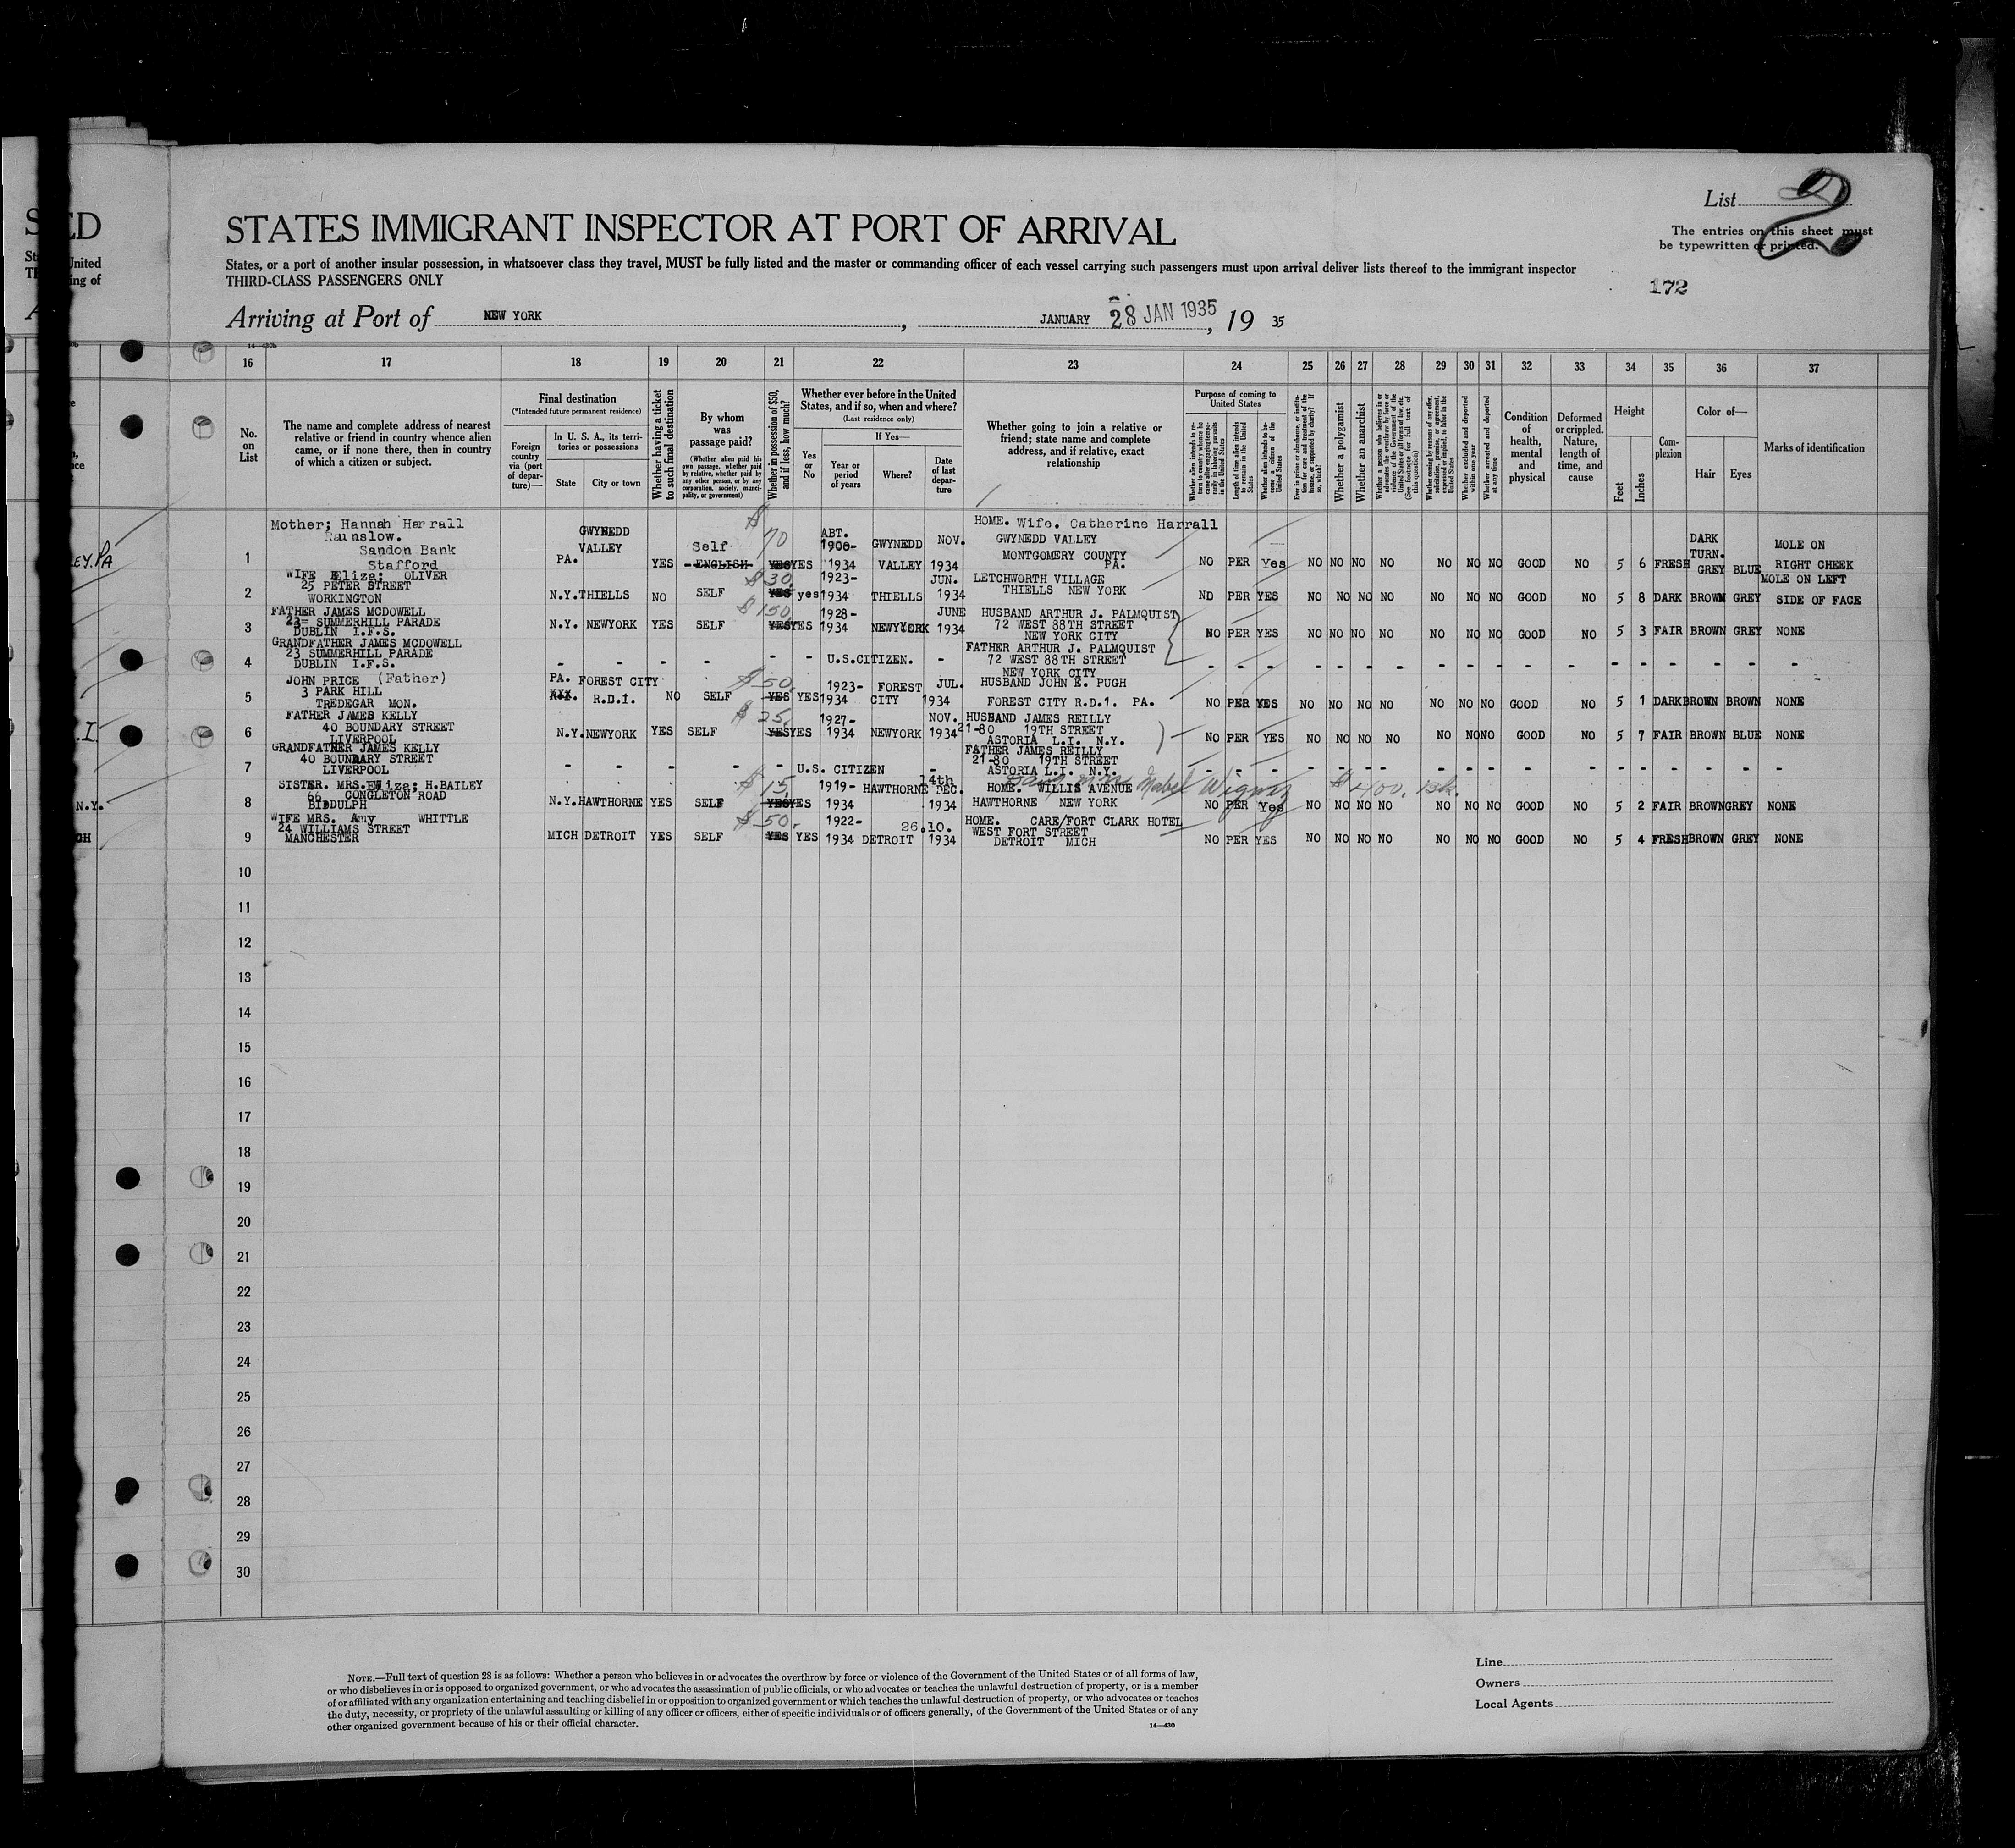 List 2
The entries on this sheet must
be typewritten or printed.
172
STATES IMMIGRANT INSPECTOR AT PORT OF ARRIVAL
States, or a port of another insular possession, in whatsoever class they travel, MUST be fully listed and the master or commanding officer of each vessel carrying such passengers must upon arrival deliver lists thereof to the immigrant inspector
THIRD-CLASS PASSENGERS ONLY
Arriving at Port of NEW YORK , JANUARY 28 JAN 1935 , 19 35
16 17 18 19 20 21 22 23 24 25 26 27 28 29 30 31 32 33 34 35 36 37
No. on List
The name and complete address of nearest relative or friend in country whence alien came, or if none there, then in country of which a citizen or subject.
Final destination
(*Intended future permanent residence)
Foreign country via (port of departure)—
In U. S. A., its territories or possessions
State
City or town
Whether having a ticket to such final destination
By whom was passage paid?
(Whether alien paid his own passage, whether paid by relative, whether paid by any other person, or by any corporation, society, municipality, or government)
Whether in possession of $50, and if less, how much?
Whether ever before in the United States, and if so, when and where?
(Last residence only)
Yes or No
If Yes—
Year or period of years
Where?
Date of last departure
Whether going to join a relative or friend; state name and complete address, and if relative, exact relationship
Purpose of coming to United States
Whether alien intends to return to country whence he came after engaging temporarily in laboring pursuits in the United States
Length of time alien intends to remain in the United States
Whether alien intends to become a citizen of the United States
Ever in prison or almshouse, or institution for care and treatment of the insane, or supported by charity? If so, which?
Whether a polygamist
Whether an anarchist
Whether a person who believes in or advocates the overthrow by force or violence of the Government of the United States or all forms of law, etc. (See footnote for full text of this question)
Whether coming by reason of any offer, solicitation, promise, or agreement, expressed or implied, to labor in the United States
Whether excluded and deported within one year
Whether arrested and deported at any time
Condition of health, mental and physical
Deformed or crippled. Nature, length of time, and cause
Height
Feet
Inches
Complexion
Color of—
Hair
Eyes
Marks of identification
1 Mother; Hannah Harrall
Sandon Bank
Stafford
PA. GWYNEDD VALLEY YES Self ENGLISH $70 YES YES ABT. 1908- 1934 GWYNEDD VALLEY NOV. 1934
HOME. Wife. Catherine Harrall
GWYNEDD VALLEY
MONTGOMERY COUNTY
PA.
NO PER Yes NO NO NO NO NO NO NO GOOD NO 5 6 FRESH DARK TURN. GREY BLUE MOLE ON RIGHT CHEEK
2 WIFE Eliza: OLIVER
25 PETER STREET
WORKINGTON
N.Y. THIELLS NO SELF $30 YES yes 1923- 1934 THIELLS JUN. 1934
LETCHWORTH VILLAGE
THIELLS NEW YORK
NO PER YES NO NO NO NO NO NO NO GOOD NO 5 8 DARK BROWN GREY MOLE ON LEFT SIDE OF FACE
3 FATHER JAMES MCDOWELL
23 SUMMERHILL PARADE
DUBLIN I.F.S.
N.Y. NEWYORK YES SELF $150 YES YES 1928- 1934 NEWYORK JUNE 1934
HUSBAND ARTHUR J. PALMQUIST
72 WEST 88TH STREET
NEW YORK CITY
NO PER YES NO NO NO NO NO NO NO GOOD NO 5 3 FAIR BROWN GREY NONE
4 GRANDFATHER JAMES MCDOWELL
23 SUMMERHILL PARADE
DUBLIN I.F.S.
- - - - - - U.S.CITIZEN. -
FATHER ARTHUR J. PALMQUIST
72 WEST 88TH STREET
NEW YORK CITY
- - - - - - - - - - - - - - - - - -
5 JOHN PRICE (Father)
3 PARK HILL
TREDEGAR MON.
PA. FOREST CITY R.D.1. NO SELF $50. YES YES 1923- 1934 FOREST CITY JUL. 1934
HUSBAND JOHN E. PUGH
FOREST CITY R.D.1. PA.
NO PER YES NO NO NO NO NO NO NO GOOD NO 5 1 DARK BROWN BROWN NONE
6 FATHER JAMES KELLY
40 BOUNDARY STREET
LIVERPOOL
N.Y. NEWYORK YES SELF $25. YES YES 1927- 1934 NEWYORK NOV. 1934
HUSBAND JAMES REILLY
21-80 19TH STREET
ASTORIA L.I. N.Y.
NO PER YES NO NO NO NO NO NO NO GOOD NO 5 7 FAIR BROWN BLUE NONE
7 GRANDFATHER JAMES KELLY
40 BOUNDARY STREET
LIVERPOOL
- - - - - - U.S. CITIZEN -
FATHER JAMES REILLY
21-80 19TH STREET
ASTORIA L.I. N.Y.
- - - - - - - - - - - - - - - - - -
8 SISTER. MRS. Eliza: H.BAILEY
66 CONGLETON ROAD
BIDDULPH
N.Y. HAWTHORNE YES SELF $15. YES YES 1919- 1934 HAWTHORNE 14th DEC. 1934
Mabel $400. Bk.
HOME. WILLIS AVENUE
HAWTHORNE NEW YORK
NO PER Yes NO NO NO NO NO NO NO GOOD NO 5 2 FAIR BROWN GREY NONE
9 WIFE MRS. Amy WHITTLE
24 WILLIAMS STREET
MANCHESTER
MICH DETROIT YES SELF $50. YES YES 1922- 1934 DETROIT 26.10. 1934
HOME. CARE/FORT CLARK HOTEL
WEST FORT STREET
DETROIT MICH
NO PER YES NO NO NO NO NO NO NO GOOD NO 5 4 FRESH BROWN GREY NONE
10
11
12
13
14
15
16
17
18
19
20
21
22
23
24
25
26
27
28
29
30
NOTE.—Full text of question 28 is as follows: Whether a person who believes in or advocates the overthrow by force or violence of the Government of the United States or of all forms of law,
or who disbelieves in or is opposed to organized government, or who advocates the assassination of public officials, or who advocates or teaches the unlawful destruction of property, or is a member
of or affiliated with any organization entertaining and teaching disbelief in or opposition to organized government or which teaches the unlawful destruction of property, or who advocates or teaches
the duty, necessity, or propriety of the unlawful assaulting or killing of any officer or officers, either of specific individuals or of officers generally, of the Government of the United States or of any
other organized government because of his or their official character.
14—430
Line
Owners
Local Agents